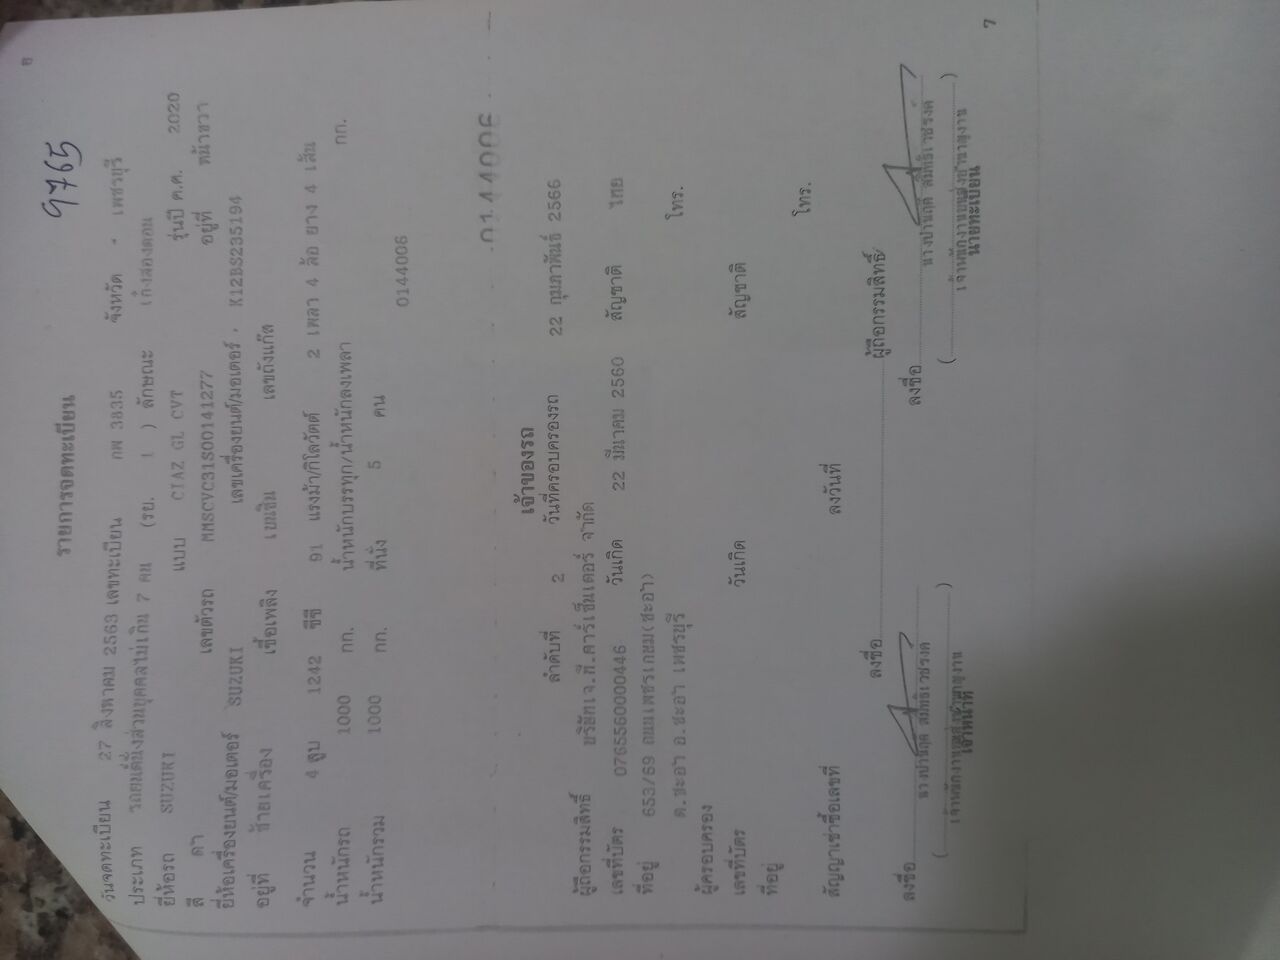 ๖
9765
รายการจดทะเบียน
วันจดทะเบียน 27 สิงหาคม 2563 เลขทะเบียน กพ 3835 จังหวัด เพชรบุรี
ประเภท รถยนต์นั่งส่วนบุคคลไม่เกิน 7 คน (รย. 1 ) ลักษณะ เก๋งสองตอน
ยี่ห้อรถ SUZUKI แบบ CIAZ GL CVT รุ่นปี ค.ศ. 2020
สี ดำ เลขตัวรถ MMSCVC31S00141277 อยู่ที่ หน้าขวา
ยี่ห้อเครื่องยนต์/มอเตอร์ SUZUKI เลขเครื่องยนต์/มอเตอร์ K12BS235194
อยู่ที่ ซ้ายเครื่อง เชื้อเพลิง เบนซิน เลขถังแก๊ส
จำนวน 4 สูบ 1242 ซีซี 91 แรงม้า/กิโลวัตต์ 2 เพลา 4 ล้อ ยาง 4 เส้น
น้ำหนักรถ 1000 กก. น้ำหนักบรรทุก/น้ำหนักลงเพลา กก.
น้ำหนักรวม 1000 กก. ที่นั่ง 5 คน
0144006
0144006
เจ้าของรถ
ลำดับที่ 2 วันที่ครอบครองรถ 22 กุมภาพันธ์ 2566
ผู้ถือกรรมสิทธิ์ บริษัทเจ.ที.คาร์เซ็นเตอร์ จำกัด
เลขที่บัตร 0765560000446 วันเกิด 22 มีนาคม 2560 สัญชาติ ไทย
ที่อยู่ 653/69 ถนนเพชรเกษม(ชะอำ)
ต.ชะอำ อ.ชะอำ เพชรบุรี โทร.
ผู้ครอบครอง
เลขที่บัตร วันเกิด สัญชาติ
ที่อยู่
โทร.
สัญญาเช่าซื้อเลขที่ ลงวันที่
ลงชื่อ ผู้ถือกรรมสิทธิ์
ลงชื่อ ลงชื่อ
( ) ( )
เจ้าหน้าที่ นายทะเบียน
๗